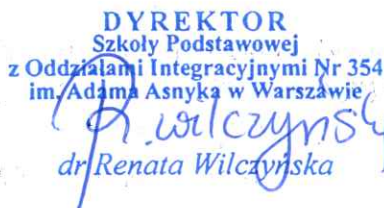 DYREKTOR
Szkoły Podstawowej
z Oddziałami Integracyjnymi Nr 354
im. Adama Asnyka w Warszawie
R. Wilczyńsk
dr Renata Wilczyńska